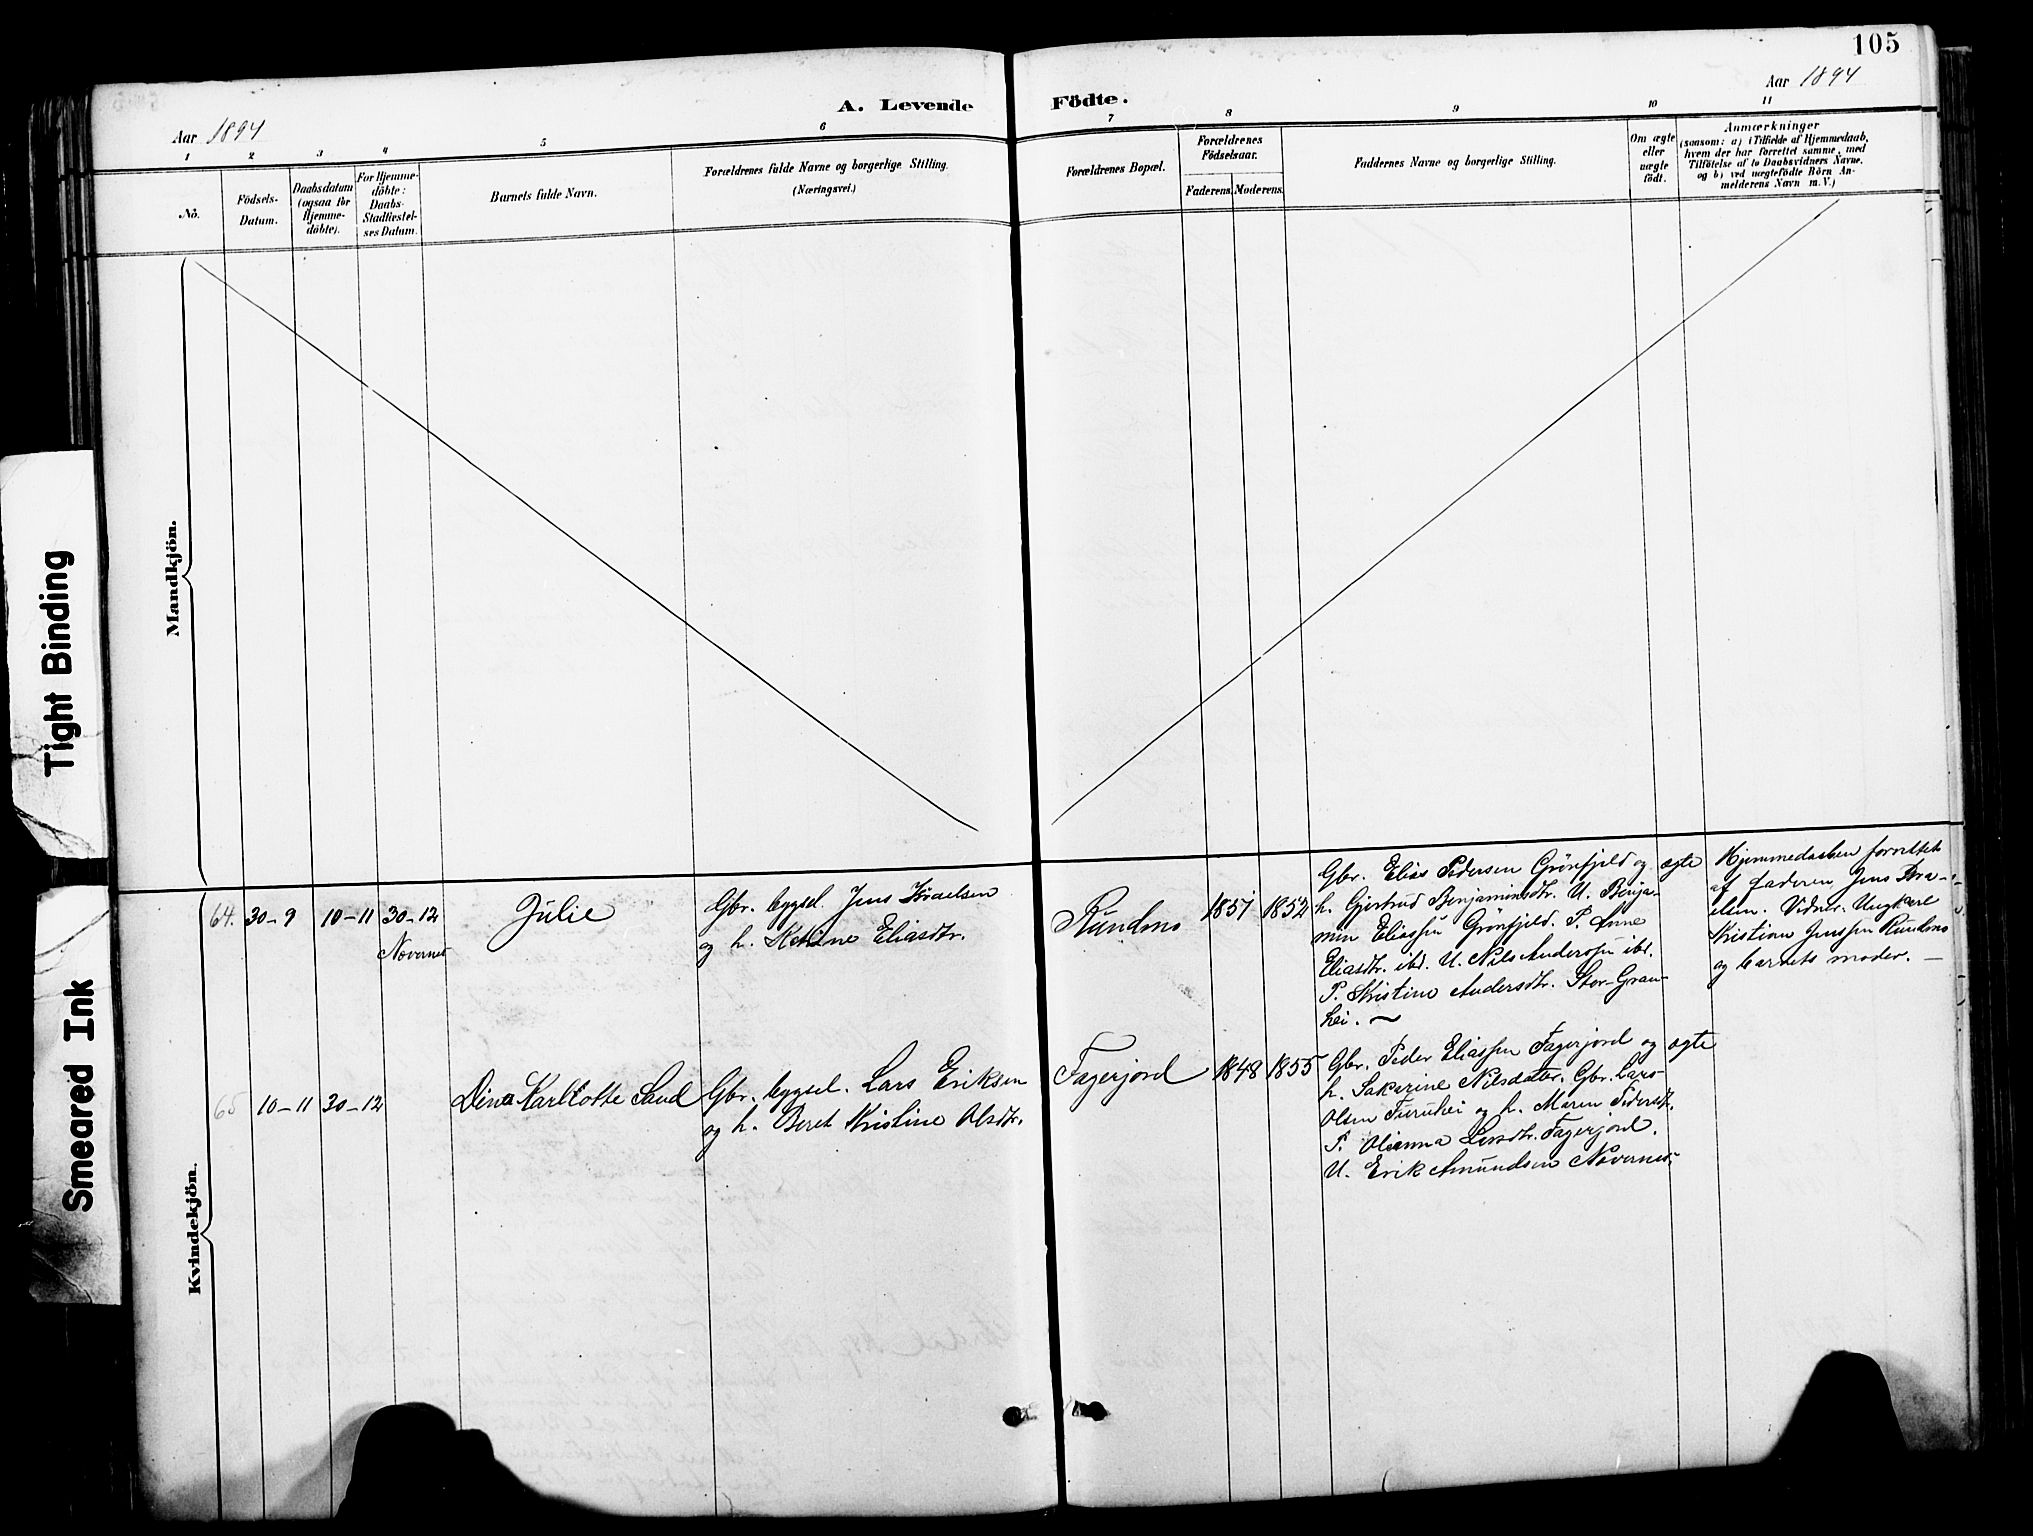 105
Aar 1894
A. Levende Födte.
Aar 1894
1 2 3 4 5 6 7 8 9 10 11
No.
Födsels-
Datum.
Daabsdatum
(ogsaa for
Hjemme-
döbte).
For Hjemme-
döbte:
Daabs-
Stadfæstel-
ses Datum.
Barnets fulde Navn.
Forældrenes fulde Navne og borgerlige Stilling.
(Næringsvei.)
Forældrenes Bopæl.
Forældrenes
Födselsaar.
Faderens. Moderens.
Faddernes Navne og borgerlige Stilling.
Om ægte
eller
uægte
födt.
Anmærkninger
(saasom: a) i Tilfælde af Hjemmedaab,
hvem der har forrettet samme, med
Tilföielse af to Daabsvidners Navne,
og b) ved uægtefödte Börn An-
melderens Navn m. V.)
Mandkjön.
Kvindekjön.
64. 30-9 10-11 30-12
Novernes
Julie
Gbr. bygsel. Jens Israelsen
og h. Eliasdtr.
Rundmo
1851 1852
Gbr. Elias Pedersen Grönfjeld og
h. Gjertrud Benjaminsdtr. U. Benja-
min Eliassen Grönfjeld. P. Anne
Eliasdtr. ibd. U. Nils Anderssen ibd.
P. Kristine Andersdtr. Stor-Gran-
hei.
ægte
Hjemmedaaben forrettet
af faderen Jens Isra-
elsen. Vidner: Ungkarl
Kristian Jenssen Rundmo
og barnets moder.
65 10-11 30-12
Dina Karllotte Sand
Gbr. bygsel. Lars Eriksen
og h. Beret Kristine Olsdtr.
Fagerjord
1848 1855
Gbr. Peder Eliassen Fagerjord og
h. Sakarine Nilsdatter. Gbr. Lars
Olsen Furuhei og h. Maren Pedersdtr.
P. Oleanna Larsdtr. Fagerjord.
U. Erik Amundsen Novernes.
ægte
Tight Binding
Smeared Ink